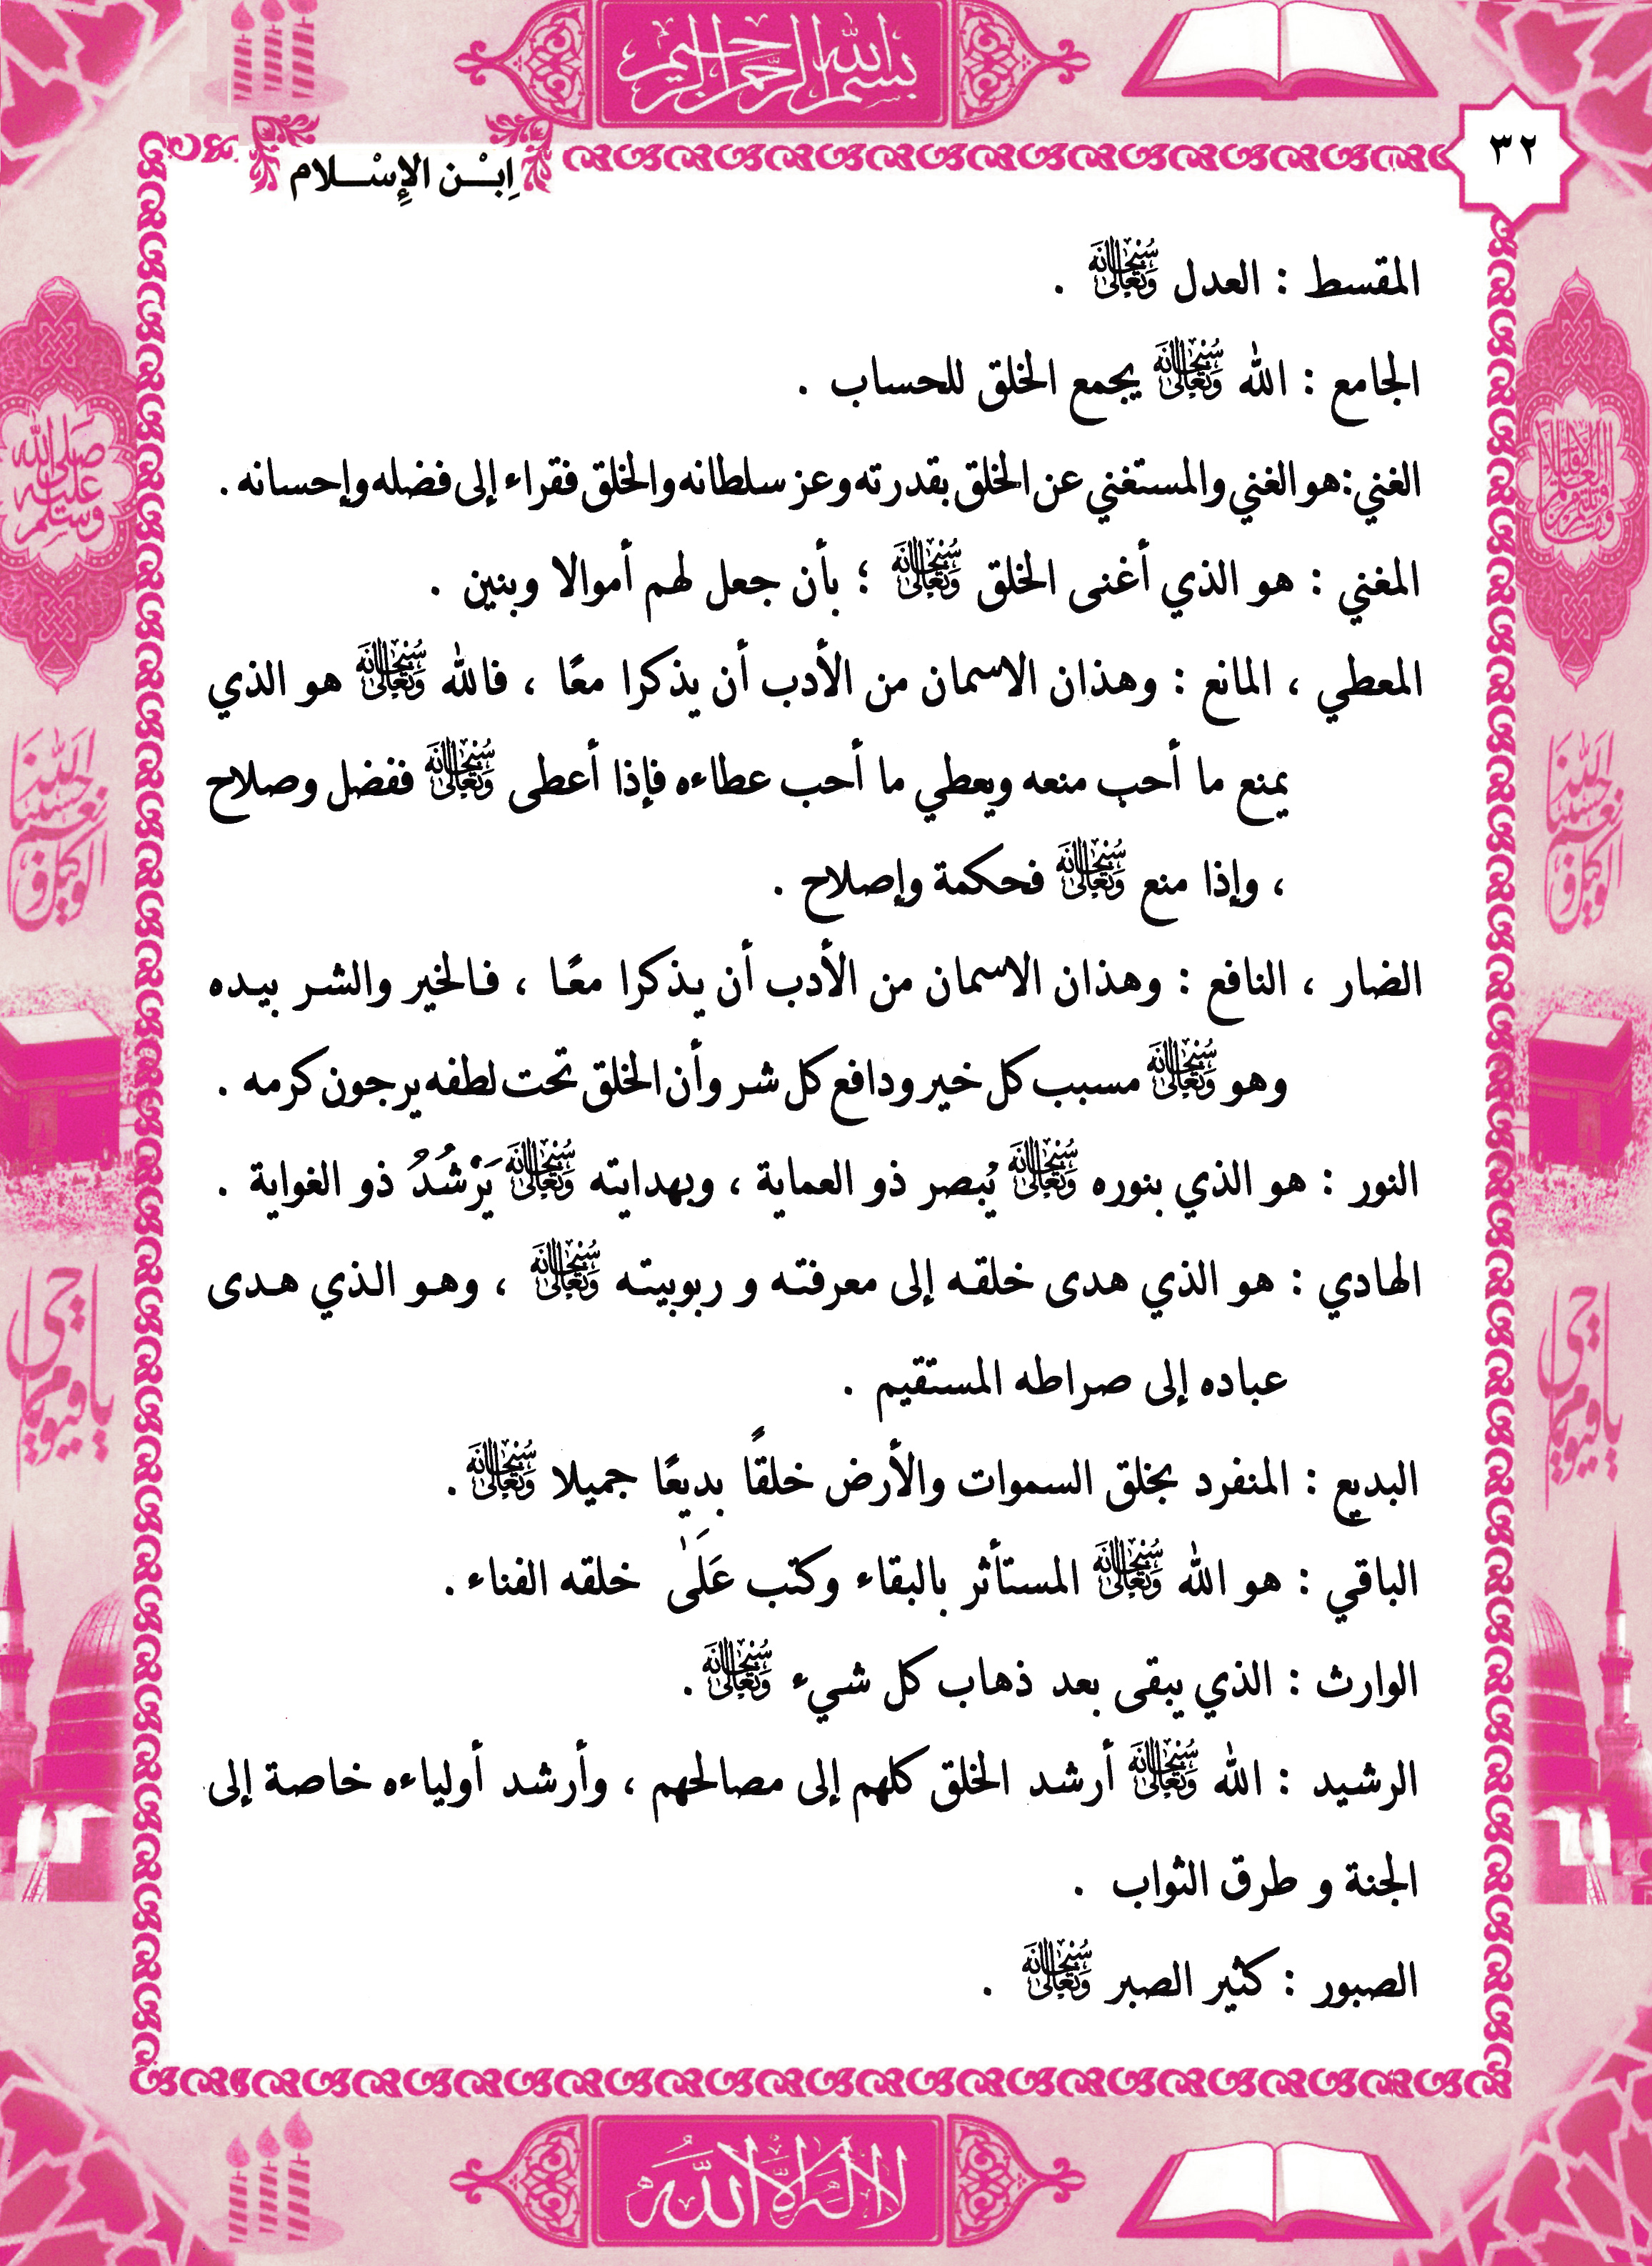 بسم الله الرحمن الرحيم
٣٢
اِبْـن الإِسْـلام
المقسط : العدل سُبْحَانَهُ وَتَعَالَىٰ .
الجامع : الله سُبْحَانَهُ وَتَعَالَىٰ يجمع الخلق للحساب .
الغني : هو الغني والمستغني عن الخلق بقدرته وعز سلطانه والخلق فقراء إلى فضله وإحسانه .
المغني : هو الذي أغنى الخلق سُبْحَانَهُ وَتَعَالَىٰ ؛ بأن جعل لهم أموالا وبنين .
المعطي ، المانع : وهذان الاسمان من الأدب أن يذكرا معًا ، فالله سُبْحَانَهُ وَتَعَالَىٰ هو الذي
يمنع ما أحب منعه ويعطي ما أحب عطاءه فإذا أعطى سُبْحَانَهُ وَتَعَالَىٰ ففضل وصلاح
، وإذا منع سُبْحَانَهُ وَتَعَالَىٰ فحكمة وإصلاح .
الضار ، النافع : وهذان الاسمان من الأدب أن يذكرا معًا ، فالخير والشر بيده
وهو سُبْحَانَهُ وَتَعَالَىٰ مسبب كل خير ودافع كل شر وأن الخلق تحت لطفه يرجون كرمه .
النور : هو الذي بنوره سُبْحَانَهُ وَتَعَالَىٰ يُبصر ذو العماية ، وبهدايته سُبْحَانَهُ وَتَعَالَىٰ يَرْشُدُ ذو الغواية .
الهادي : هو الذي هدى خلقه إلى معرفته و ربوبيته سُبْحَانَهُ وَتَعَالَىٰ ، وهو الذي هدى
عباده إلى صراطه المستقيم .
البديع : المنفرد بخلق السموات والأرض خلقًا بديعًا جميلا سُبْحَانَهُ وَتَعَالَىٰ .
الباقي : هو الله سُبْحَانَهُ وَتَعَالَىٰ المستأثر بالبقاء وكتب عَلَىٰ خلقه الفناء .
الوارث : الذي يبقى بعد ذهاب كل شيء سُبْحَانَهُ وَتَعَالَىٰ .
الرشيد : الله سُبْحَانَهُ وَتَعَالَىٰ أرشد الخلق كلهم إلى مصالحهم ، وأرشد أولياءه خاصة إلى
الجنة و طرق الثواب .
الصبور : كثير الصبر سُبْحَانَهُ وَتَعَالَىٰ .
صلى الله عليه وسلم
حسبنا الله ونعم الوكيل
يا حي يا قيوم
حسبنا الله ونعم الوكيل
يا حي يا قيوم
لا إله إلا الله